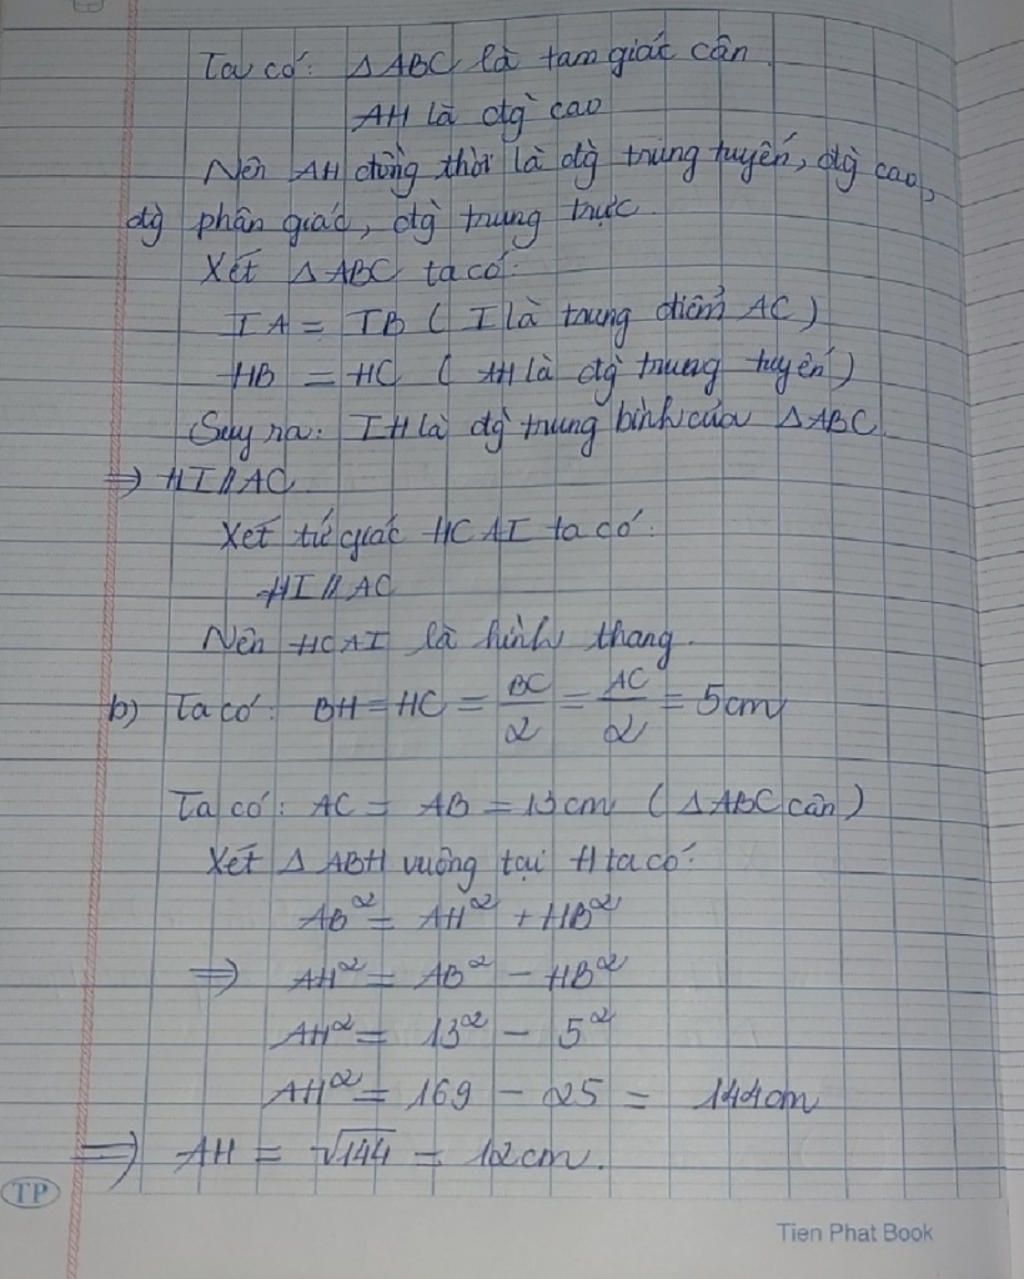 Ta có: Δ ABC là tam giác cân
AH là đg` cao
Nên AH đồng thời là đg` trung tuyến, đg` cao,
đg` phân giác, đg` trung trực.
Xét Δ ABC ta có:
IA = IB ( I là trung điểm AC )
HB = HC ( AH là đg` trung tuyến )
Suy ra: IH là đg` trung bình của Δ ABC.
⇒ HI // AC
Xét tứ giác HCAI ta có:
HI // AC
Nên HCAI là hình thang.
b) Ta có: BH = HC = BC/2 = AC/2 = 5cm
Ta có: AC = AB = 13cm ( Δ ABC cân )
Xét Δ ABH vuông tại H ta có:
AB² = AH² + HB²
⇒ AH² = AB² - HB²
AH² = 13² - 5²
AH² = 169 - 25 = 144cm
⇒ AH = √144 = 12cm.
TP
Tien Phat Book